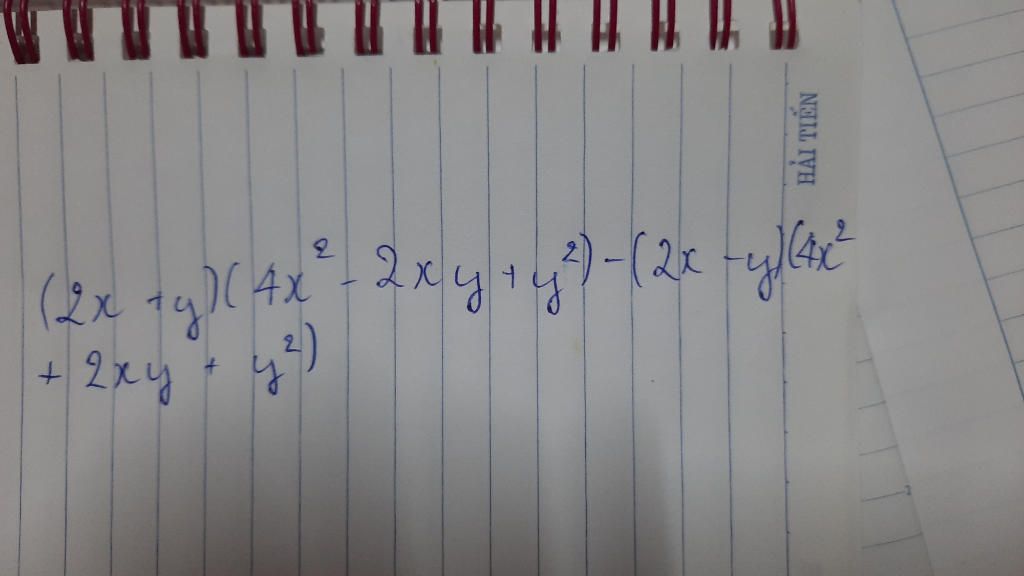 HẢI TIẾN
(2x + y)(4x² - 2xy + y²) - (2x - y)(4x²
+ 2xy + y²)